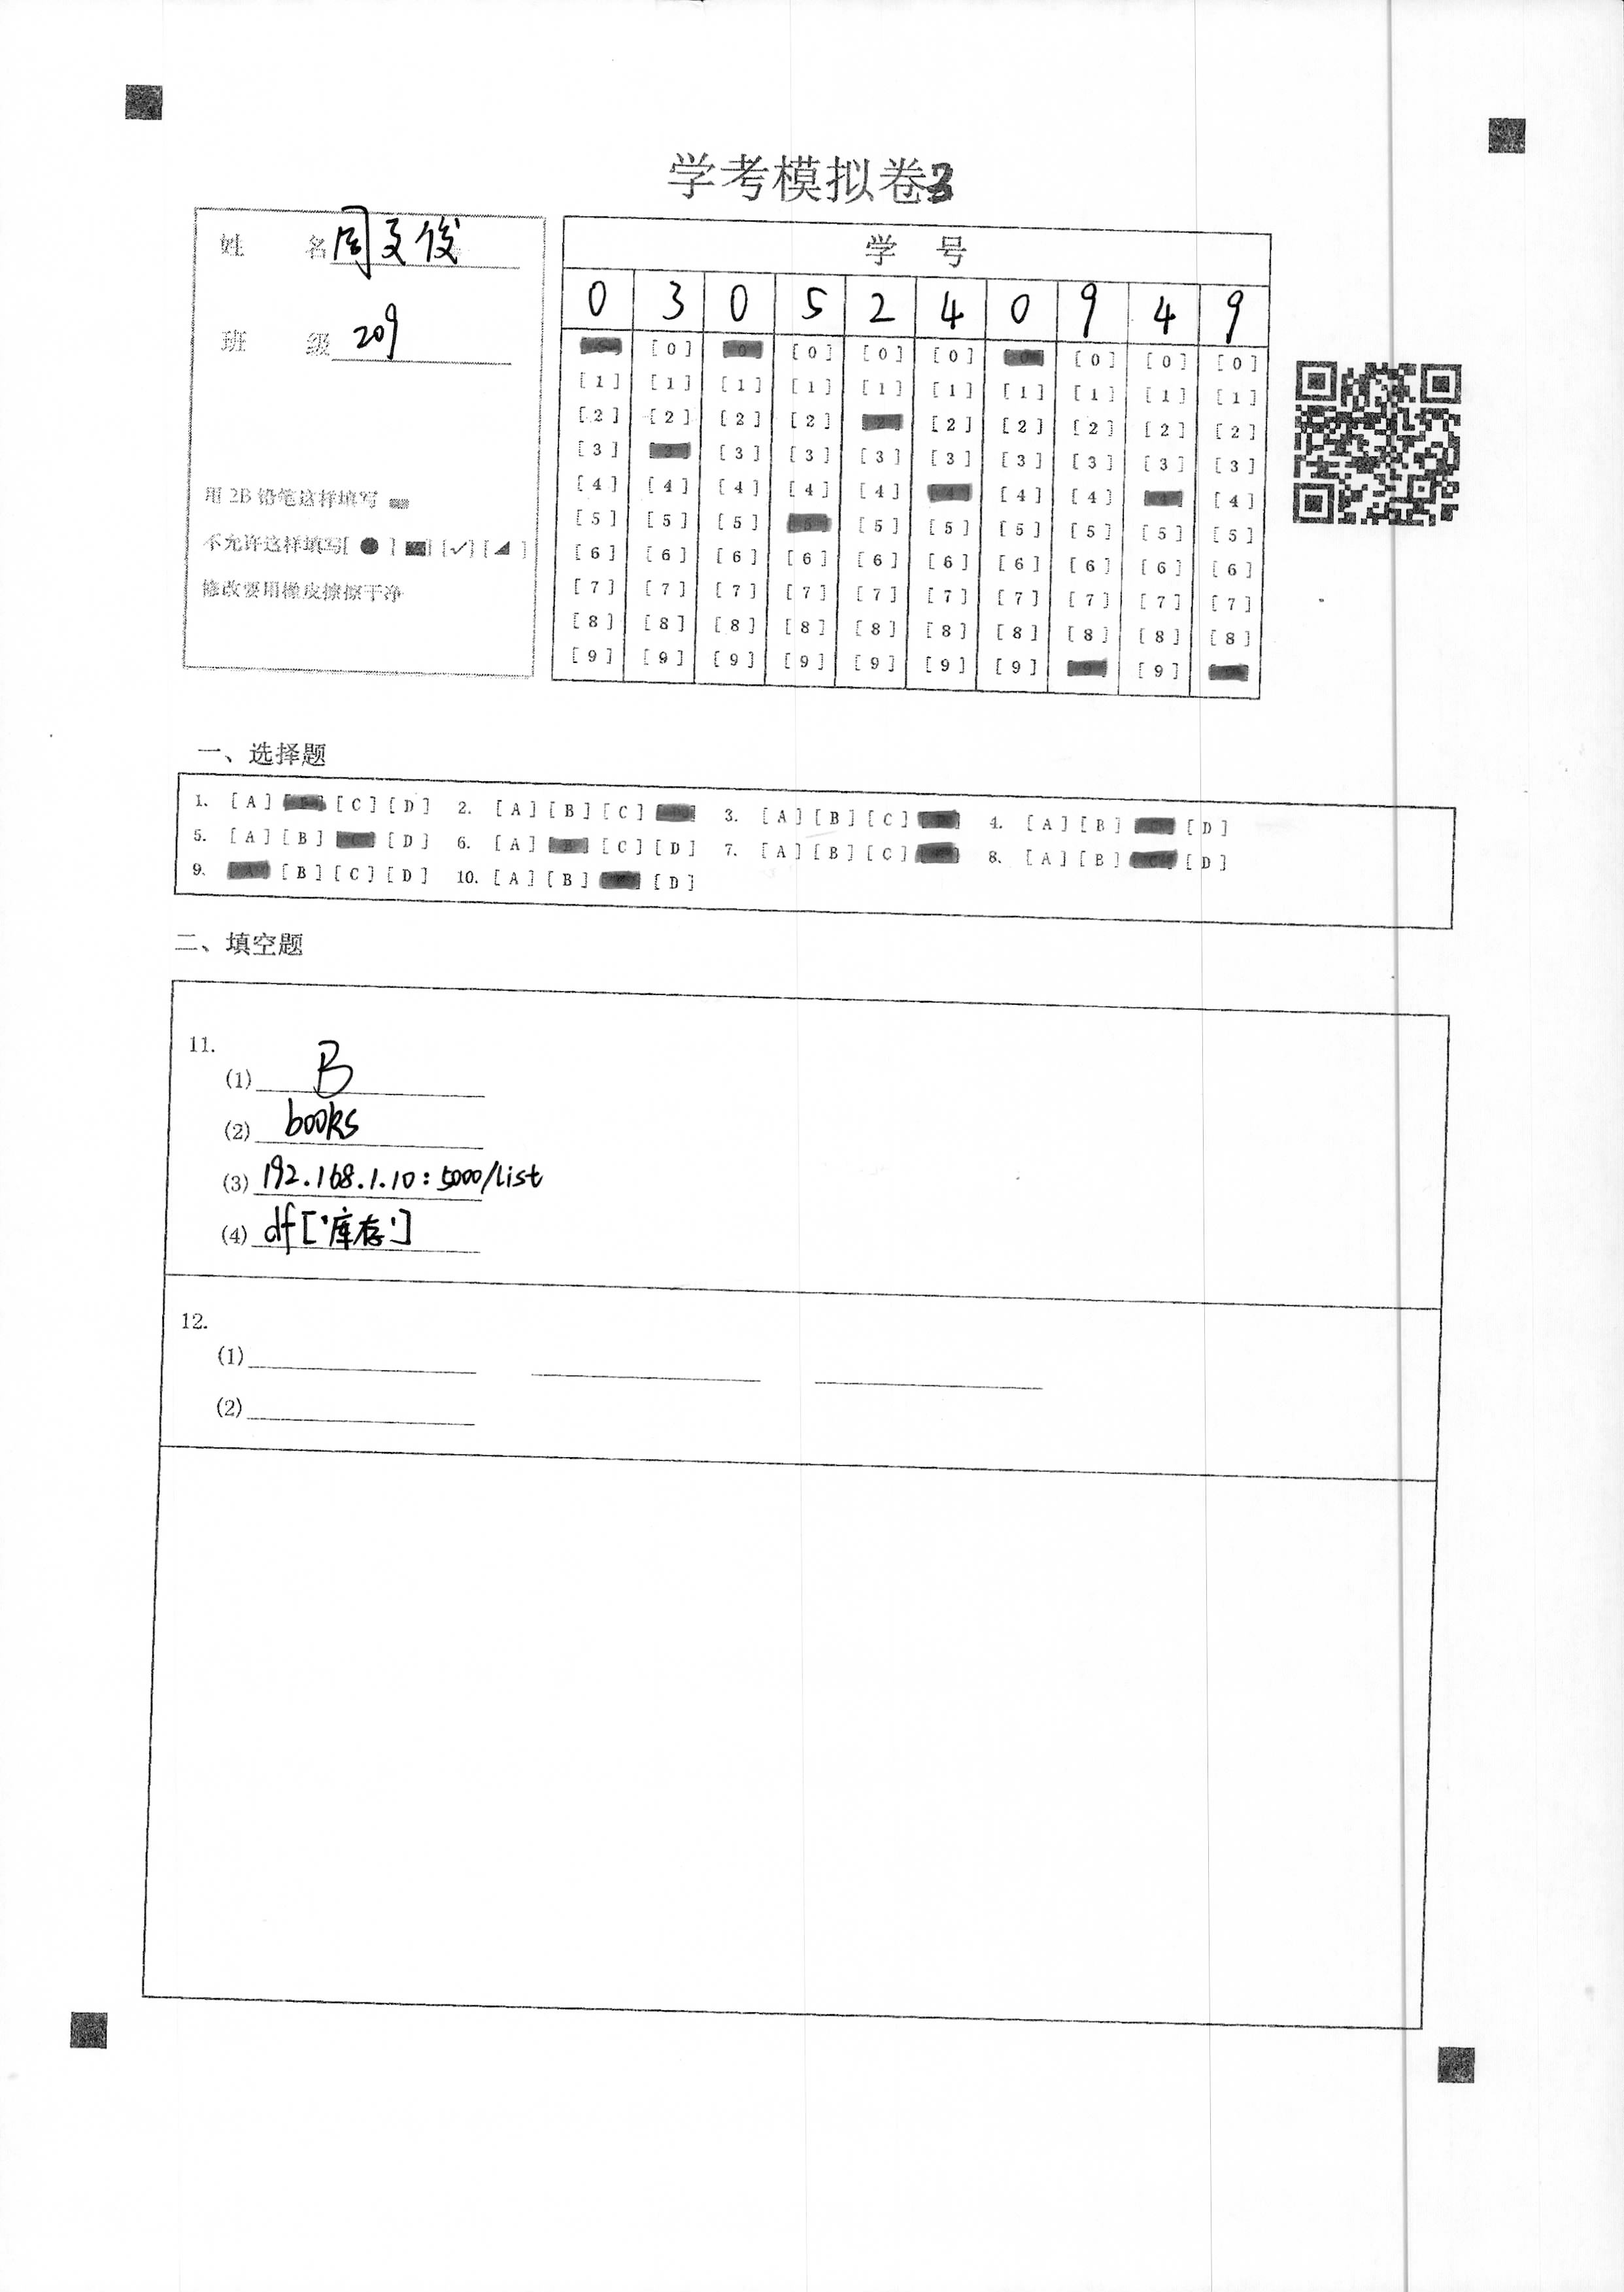 学考模拟卷3
姓 名 周文俊
班 级 209
用 2B 铅笔这样填写
不允许这样填写[ ● ] [■] [✓] [◢ ]
修改要用橡皮擦擦干净
学 号
0 3 0 5 2 4 0 9 4 9
[0] [0] [0] [0] [0] [0] [0]
[1] [1] [1] [1] [1] [1] [1] [1] [1] [1]
[2] [2] [2] [2] [2] [2] [2] [2] [2] [2]
[3] [3] [3] [3] [3] [3] [3] [3] [3]
[4] [4] [4] [4] [4] [4] [4] [4] [4]
[5] [5] [5] [5] [5] [5] [5] [5] [5]
[6] [6] [6] [6] [6] [6] [6] [6] [6] [6]
[7] [7] [7] [7] [7] [7] [7] [7] [7] [7]
[8] [8] [8] [8] [8] [8] [8] [8] [8] [8]
[9] [9] [9] [9] [9] [9] [9] [9] [9]
一、选择题
1. [A] [C] [D] 2. [A] [B] [C] 3. [A] [B] [C] 4. [A] [B] [D]
5. [A] [B] [D] 6. [A] [C] [D] 7. [A] [B] [C] 8. [A] [B] [D]
9. [B] [C] [D] 10. [A] [B] [D]
二、填空题
11.
(1) B
(2) books
(3) 192.168.1.10:5000/list
(4) df['库存']
12.
(1)
(2)